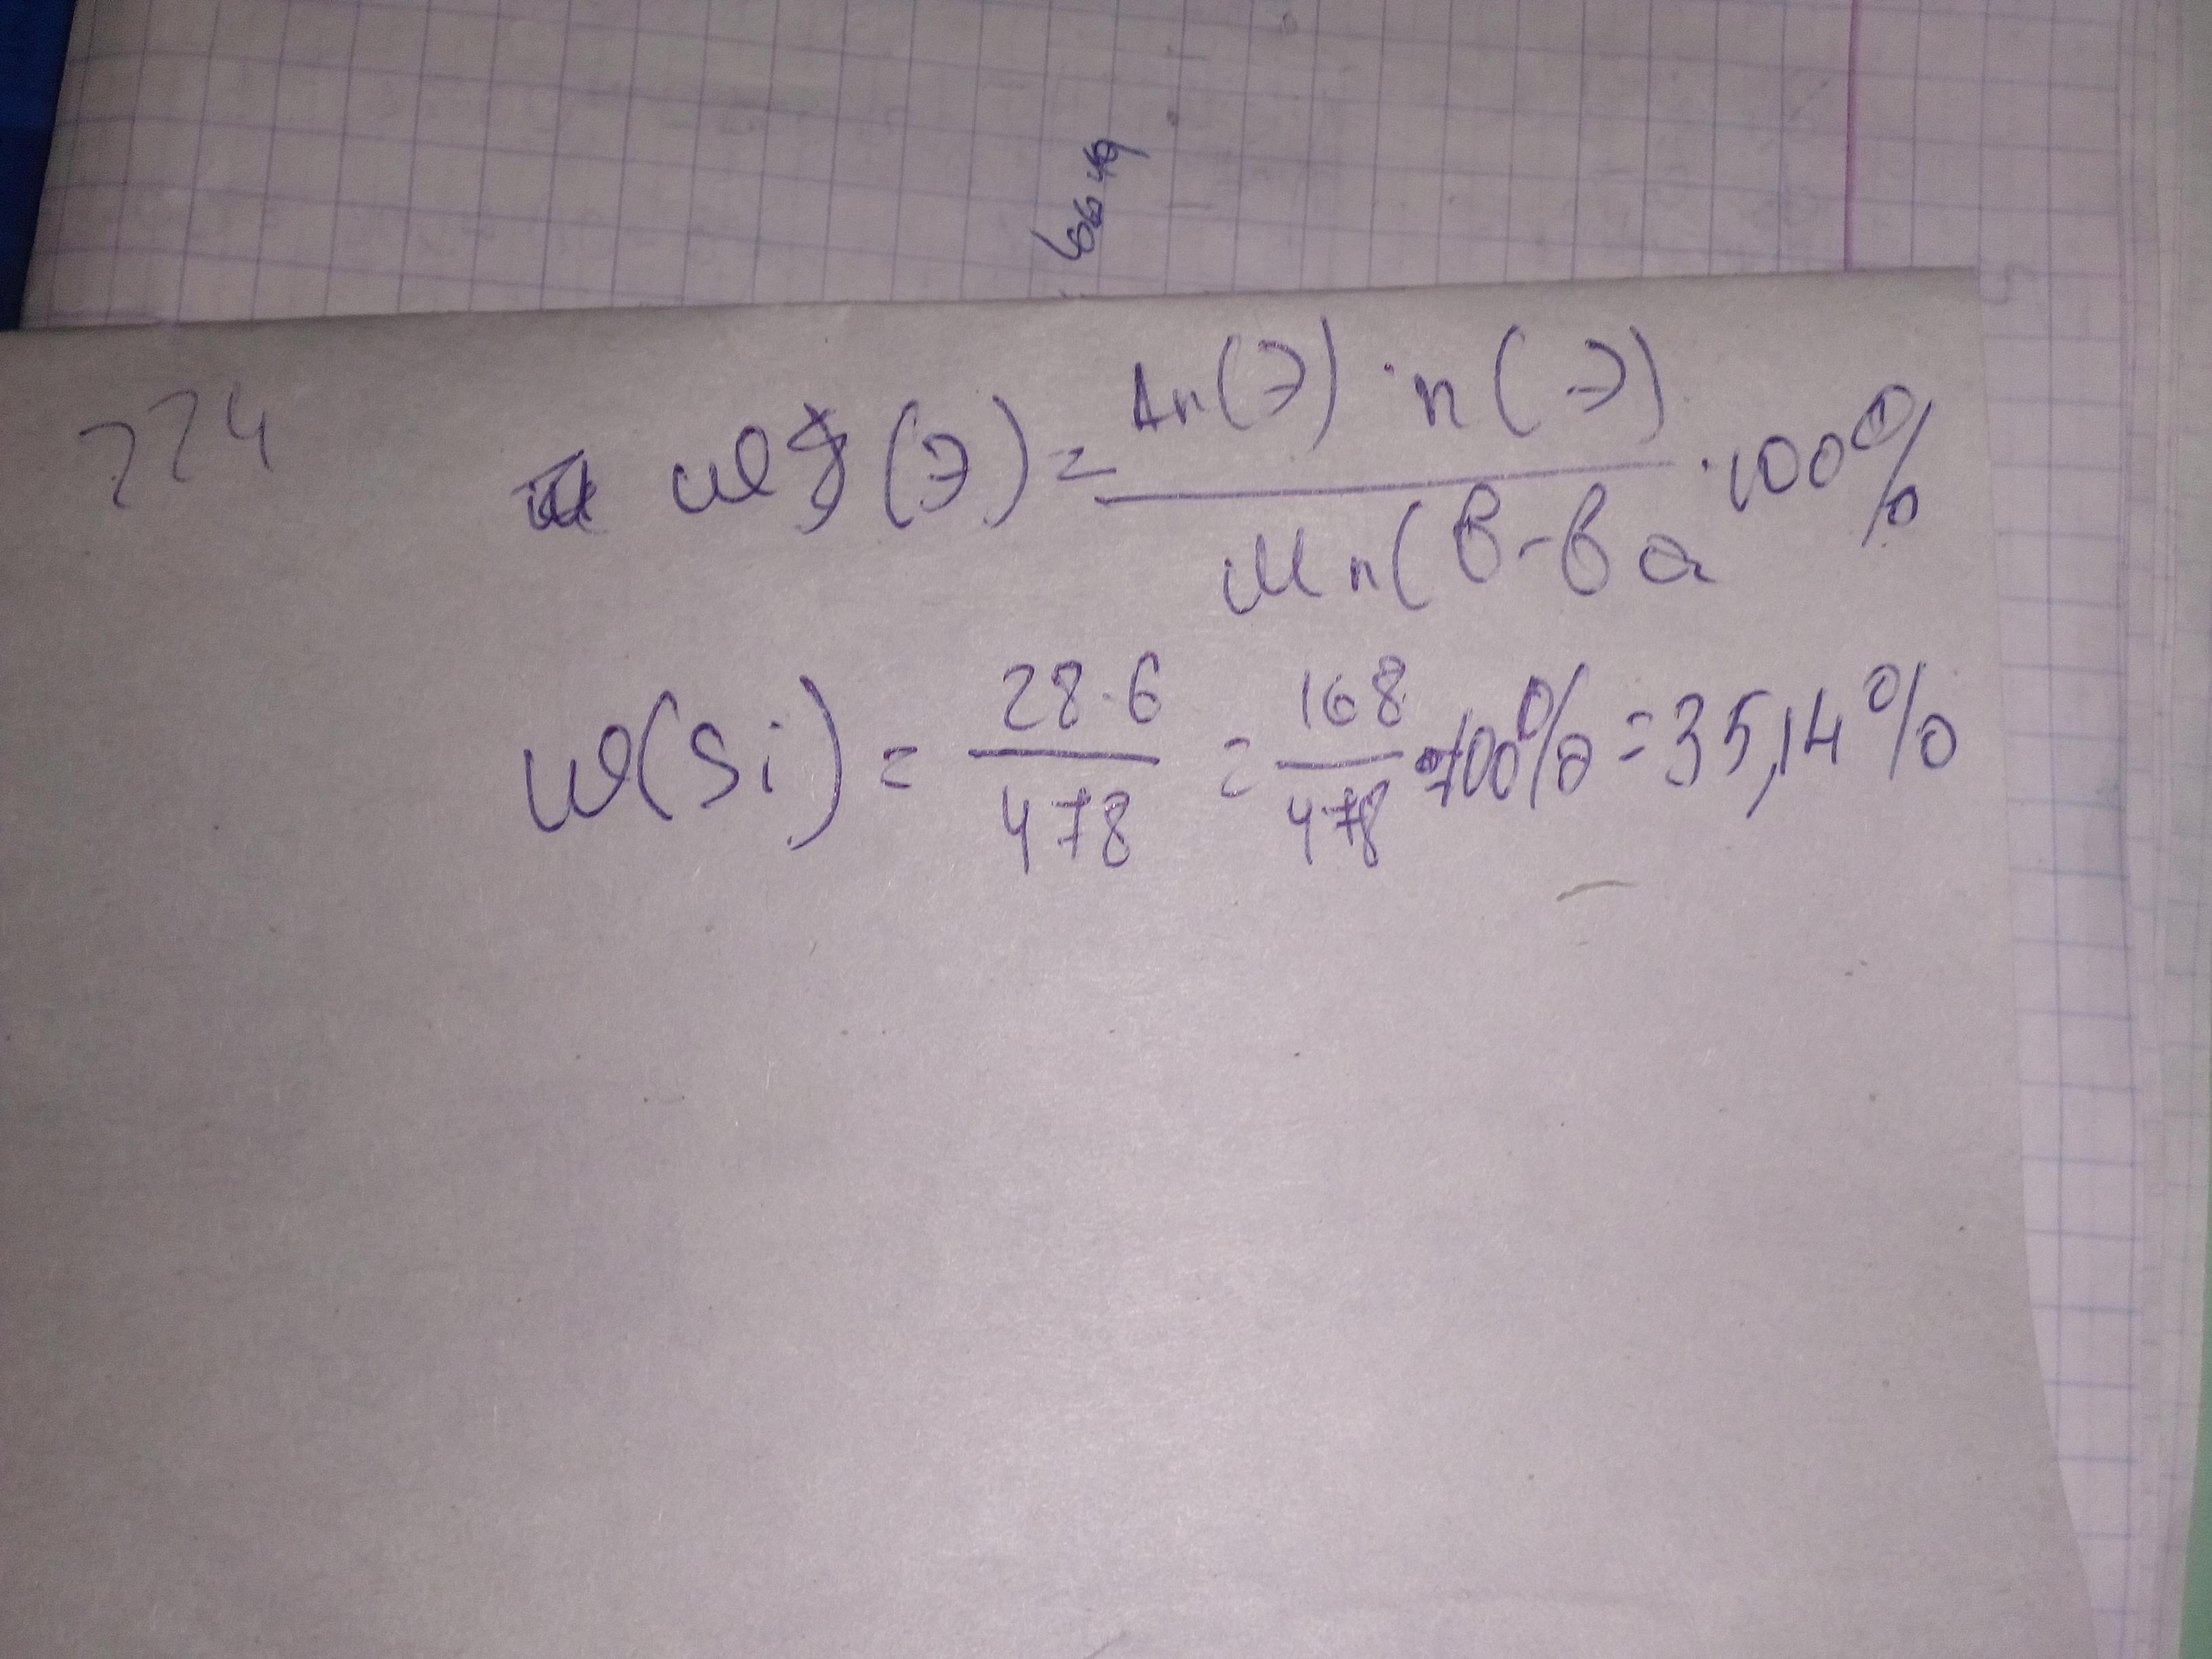 224
ω(Э) = Ar(Э) · n(Э) / Mr(в-ва · 100%
ω(Si) = 28·6 / 478 = 168 / 478 · 100% = 35,14%